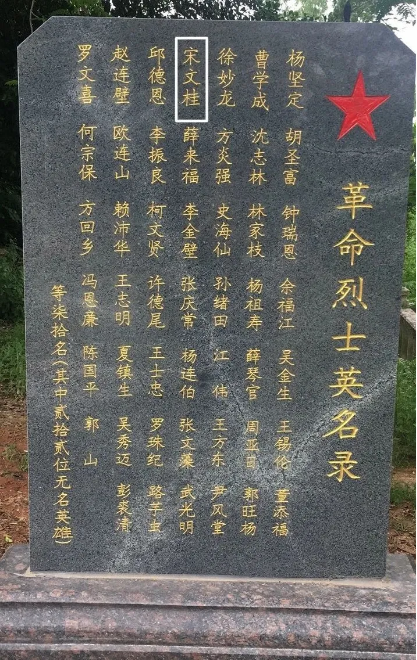 革命烈士英名录
杨坚定 胡圣富 钟瑞恩 佘福江 吴金生 王锡伦 董添福
曹学成 沈志林 林家枝 杨祖寿 薛琴官 郭旺杨
徐妙龙 方炎强 史海仙 孙绪田 江伟 王方东 尹风堂
宋文桂 薛来福 李金壁 张庆常 杨连伯 张文藻 武光明
邱德恩 李振良 柯文贤 许德尾 王士忠 罗珠纪
赵连壁 欧连山 赖沛华 王志明 夏镇生 吴秀迈 彭裘清
罗文喜 何宗保 方回乡 冯恩廉 陈国平 郭山
等柒拾名(其中贰拾贰位无名英雄)